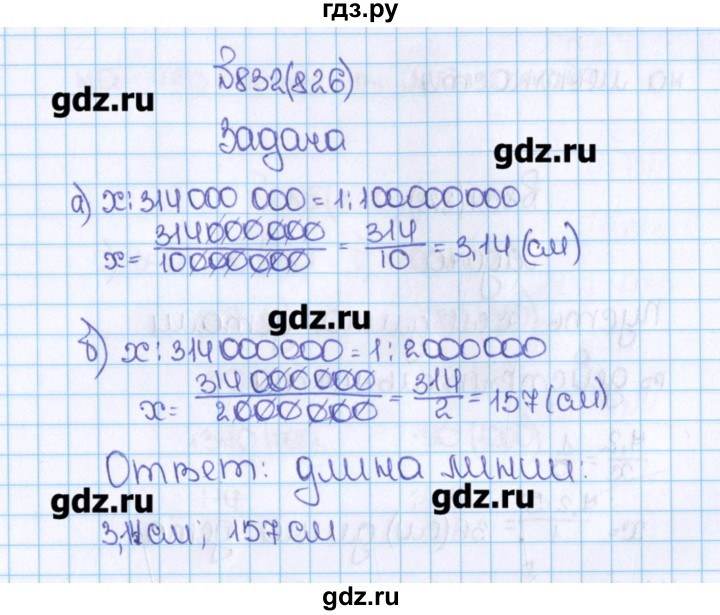 гдз.ру
№832(826)
gdz.ru
Задача
gdz.ru
а) x:314 000 000 = 1:100000000
x = 314000000/10000000 = 314/10 = 3,14 (см)
gdz.ru
б) x:314000000 = 1:2000000
x = 314000000/2000000 = 314/2 = 157 (см)
Ответ: длина линии:
gdz.ru
gdz.ru
3,14 см; 157 см
gdz.ru